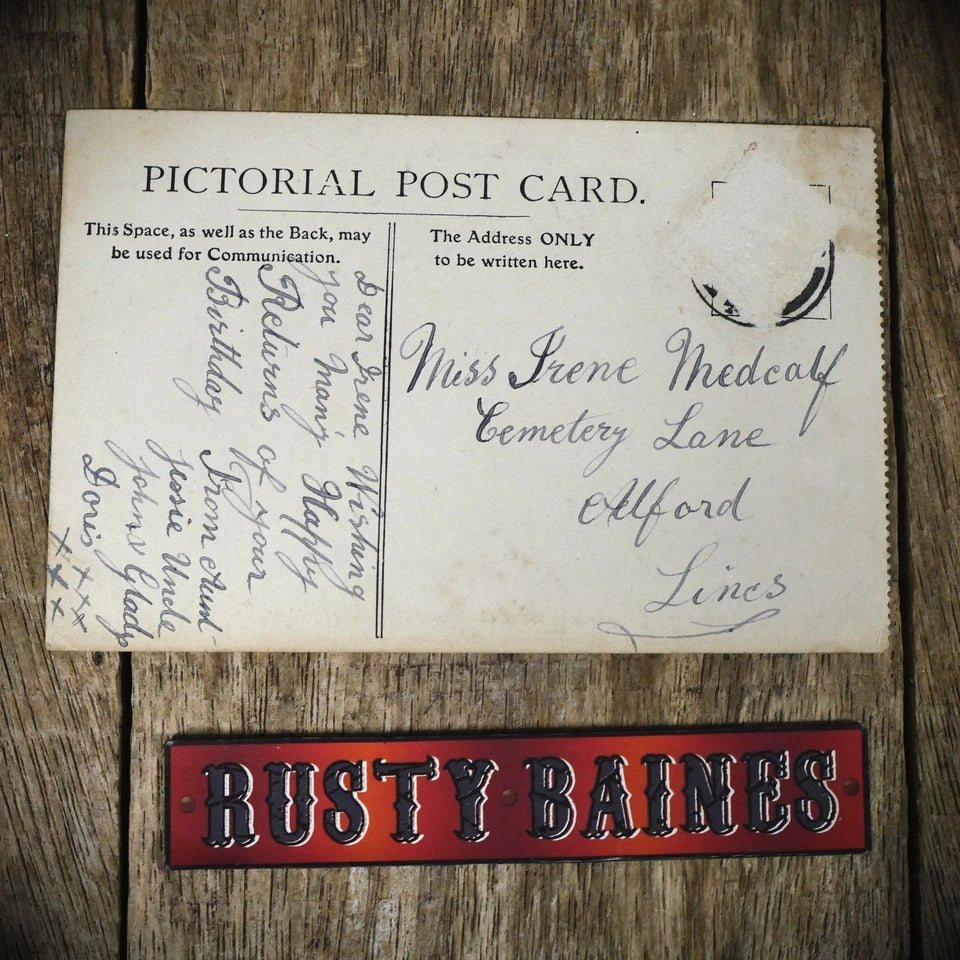 PICTORIAL POST CARD.
This Space, as well as the Back, may
be used for Communication.
The Address ONLY
to be written here.
Dear Irene Wishing
you Many Happy
Returns of your
Birthday From Aunt
Jessie Uncle
John & Gladys
Doris x x x
x x x
Miss Irene Medcalf
Cemetery Lane
Alford
Lincs
RUSTY BAINES